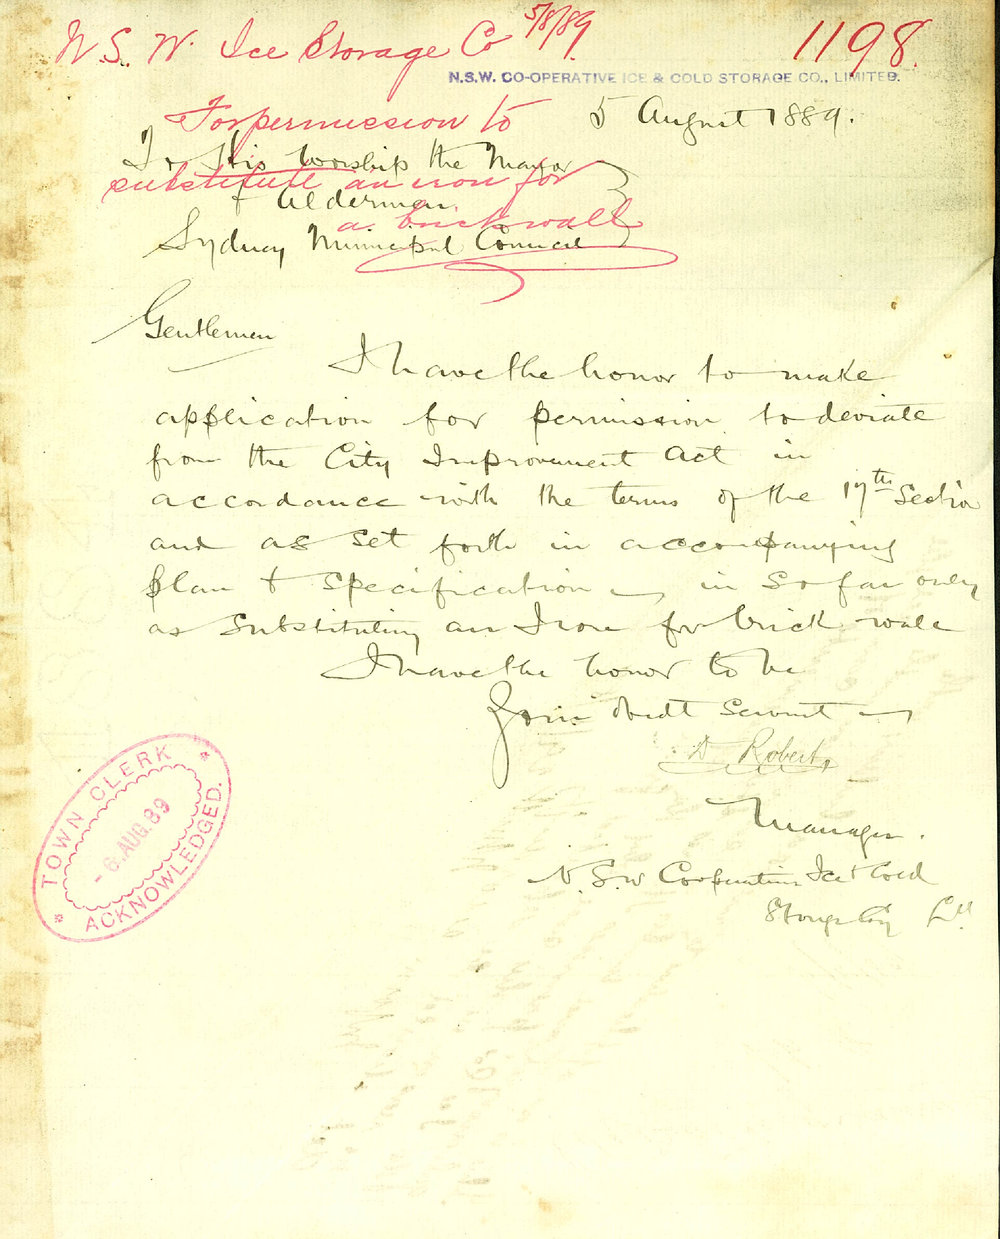 N.S.W. Ice Storage Co 5/8/89. 1198.
N.S.W. CO-OPERATIVE ICE & COLD STORAGE CO., LIMITED.
For permission to
substitute an iron for
a brick wall
5 August 1889.
To His Worship the Mayor
& Aldermen
Sydney Municipal Council
Gentlemen
I have the honor to make
application for permission to deviate
from the City Improvement Act in
accordance with the terms of the 17th Section
and as set forth in accompanying
plan & specification in so far only
as substituting an Iron for brick wall
I have the honor to be
Your obedt Servant
D Roberts
Manager.
N.S.W Cooperative Ice & Cold
Storage Coy Ld.
TOWN CLERK
- 6. AUG. 89
ACKNOWLEDGED.